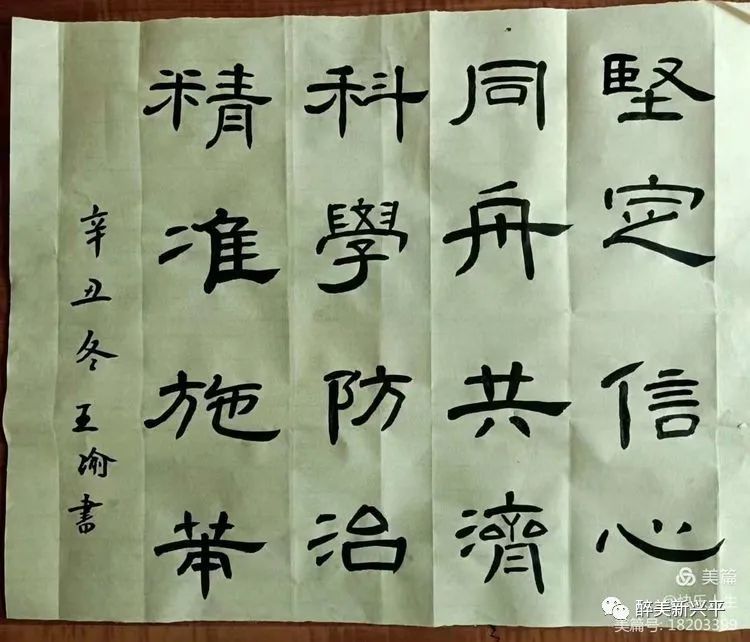 堅定信心
同舟共濟
科學防治
精准施策
辛丑冬王瑜書
美篇
@快乐人生
醉美新兴平
美篇号:18203399